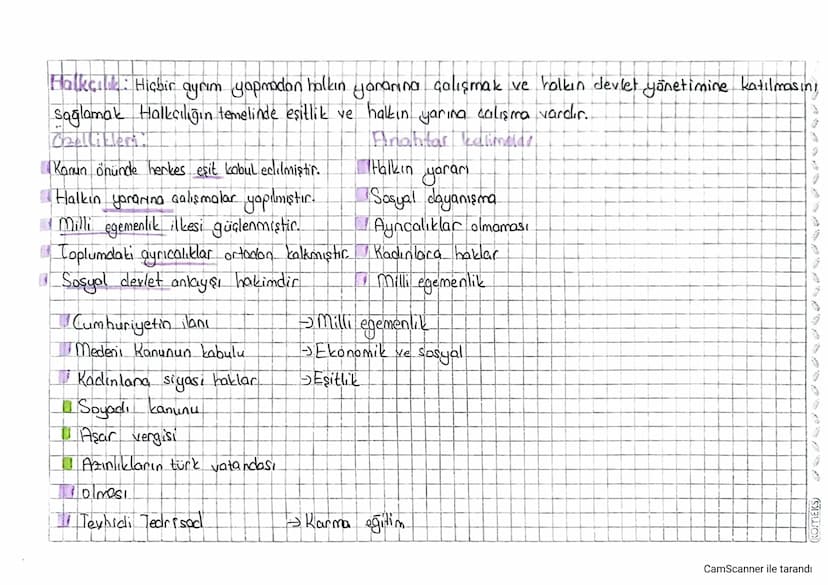 Halkçılık: Hiçbir ayrım yapmadan halkın yararına çalışmak ve halkın devlet yönetimine katılmasını
sağlamak Halkçılığın temelinde eşitlik ve halkın yarına çalışma vardır.
Özellikleri:
Kanun önünde herkes eşit kabul edilmiştir.
Halkın yararına çalışmalar yapılmıştır.
Milli egemenlik ilkesi güçlenmiştir.
Toplumdaki ayrıcalıklar ortadan kalkmıştır.
Sosyal devlet anlayışı hakimdir
Anahtar kelimeler
Halkın yararı
Sosyal dayanışma
Ayrıcalıklar olmaması
Kadınlara haklar
Milli egemenlik
Cumhuriyetin ilanı → Milli egemenlik
Medeni Kanunun kabulu → Ekonomik ve sosyal
Kadınlara siyasi haklar → Eşitlik
Soyadı kanunu
Aşar vergisi
Azınlıkların türk vatandaşı
olması
Tevhidi Tedrisad → Karma eğitim
CamScanner ile tarandı